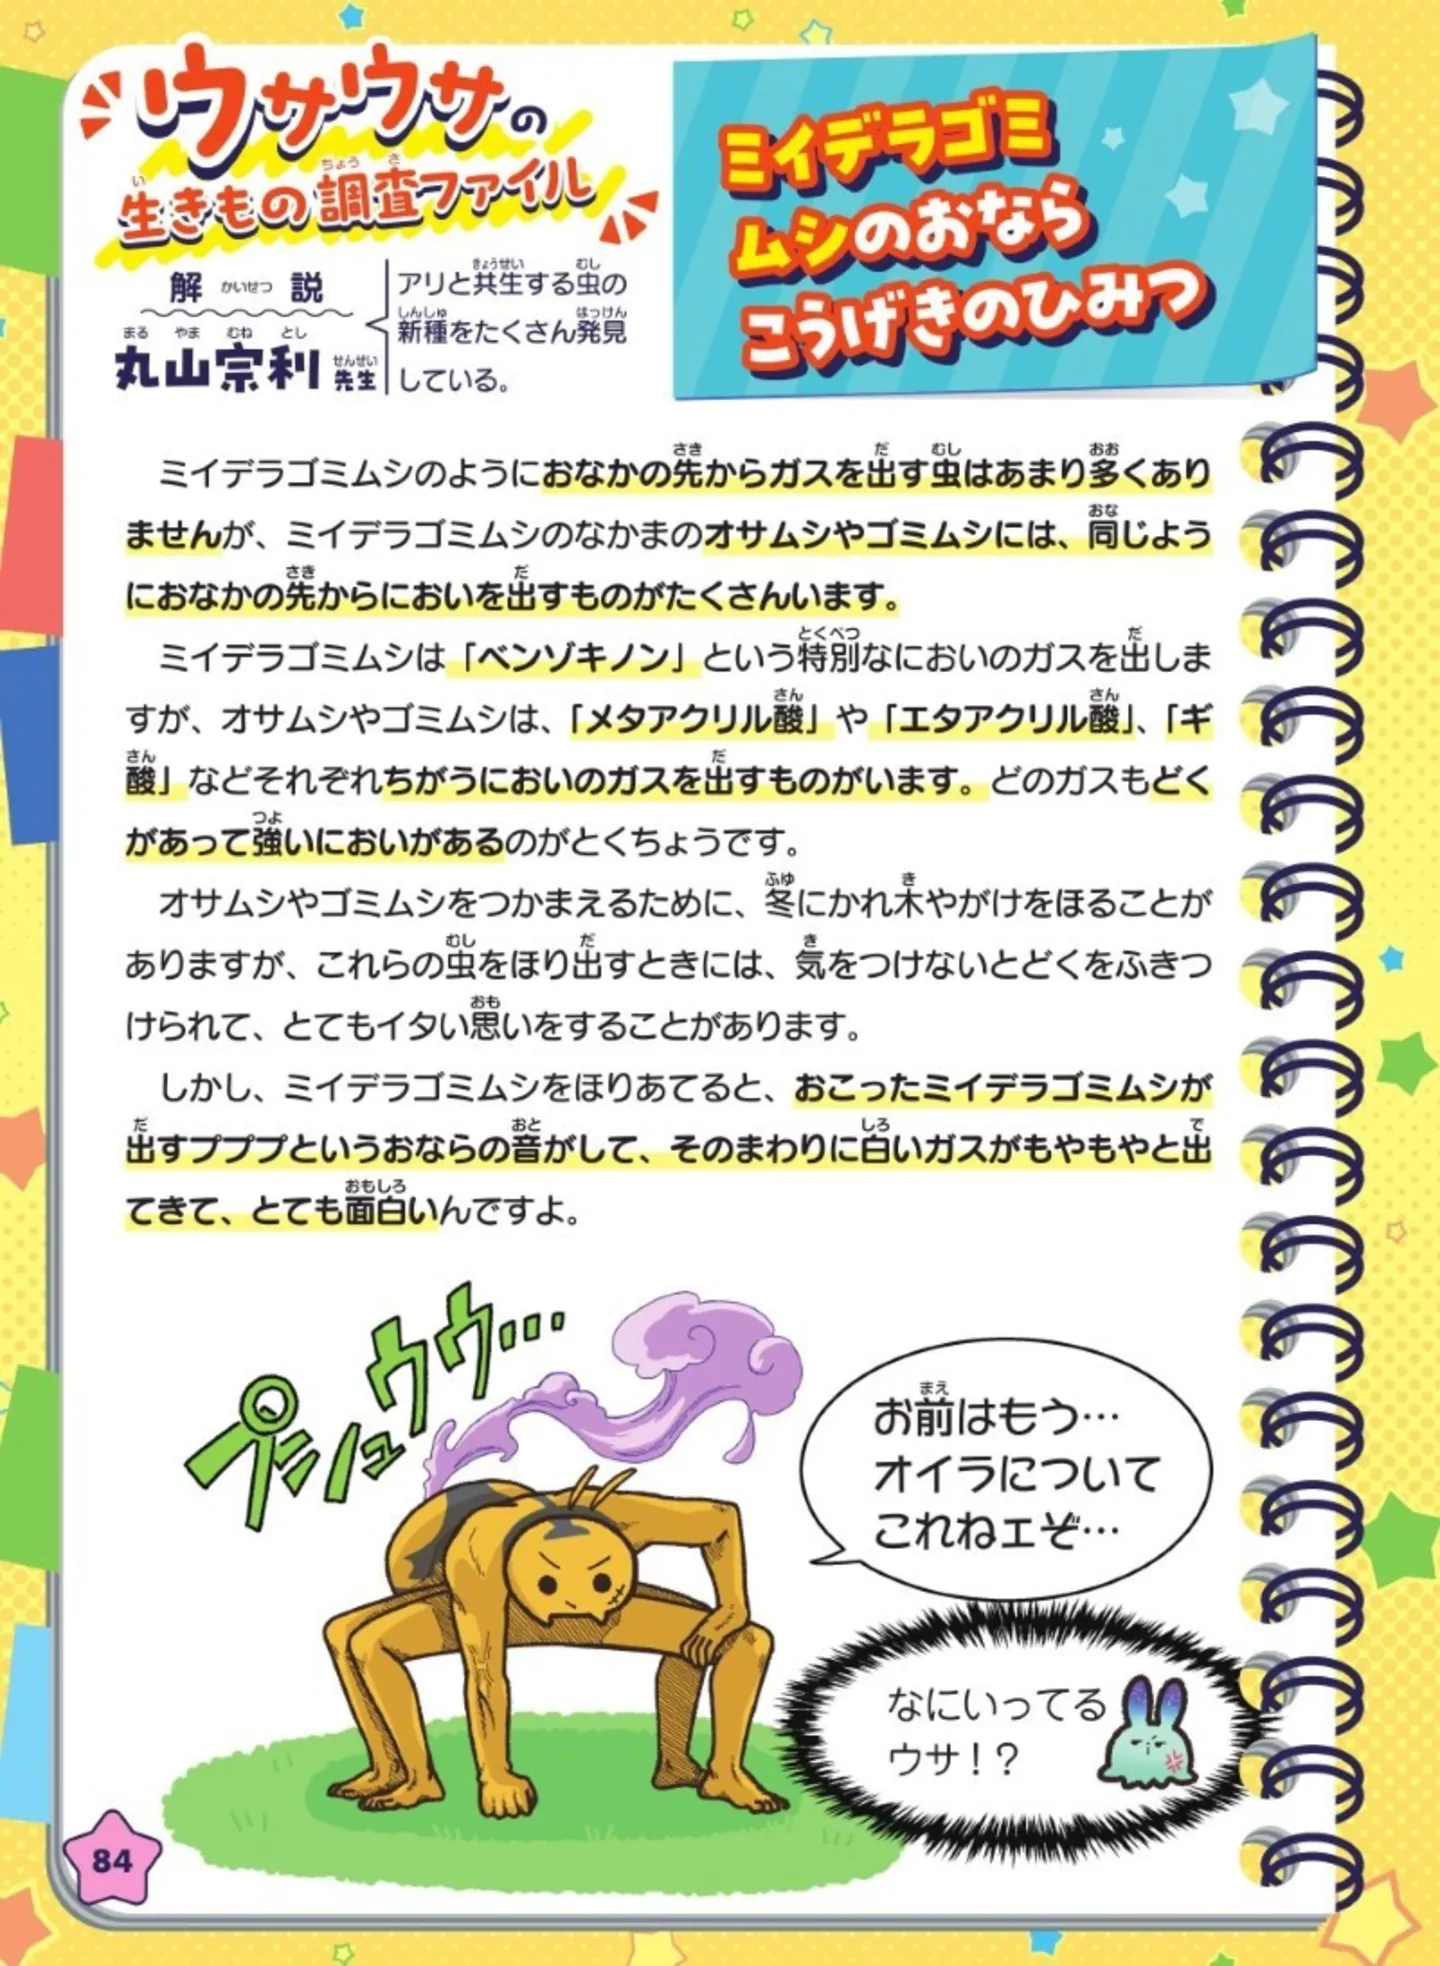 ウサウサの
生きもの調査ファイル
解説 かいせつ
丸山宗利先生
アリと共生する虫の
新種をたくさん発見
している。
ミイデラゴミ
ムシのおなら
こうげきのひみつ
ミイデラゴミムシのようにおなかの先からガスを出す虫はあまり多くあり
ませんが、ミイデラゴミムシのなかまのオサムシやゴミムシには、同じよう
におなかの先からにおいを出すものがたくさんいます。
ミイデラゴミムシは「ベンゾキノン」という特別なにおいのガスを出しま
すが、オサムシやゴミムシは、「メタアクリル酸」や「エタアクリル酸」、「ギ
酸」などそれぞれちがうにおいのガスを出すものがいます。どのガスもどく
があって強いにおいがあるのがとくちょうです。
オサムシやゴミムシをつかまえるために、冬にかれ木やがけをほることが
ありますが、これらの虫をほり出すときには、気をつけないとどくをふきつ
けられて、とてもイタい思いをすることがあります。
しかし、ミイデラゴミムシをほりあてると、おこったミイデラゴミムシが
出すプププというおならの音がして、そのまわりに白いガスがもやもやと出
てきて、とても面白いんですよ。
プシュウウ…
お前はもう…
オイラについて
これねェぞ…
なにいってる
ウサ！？
84